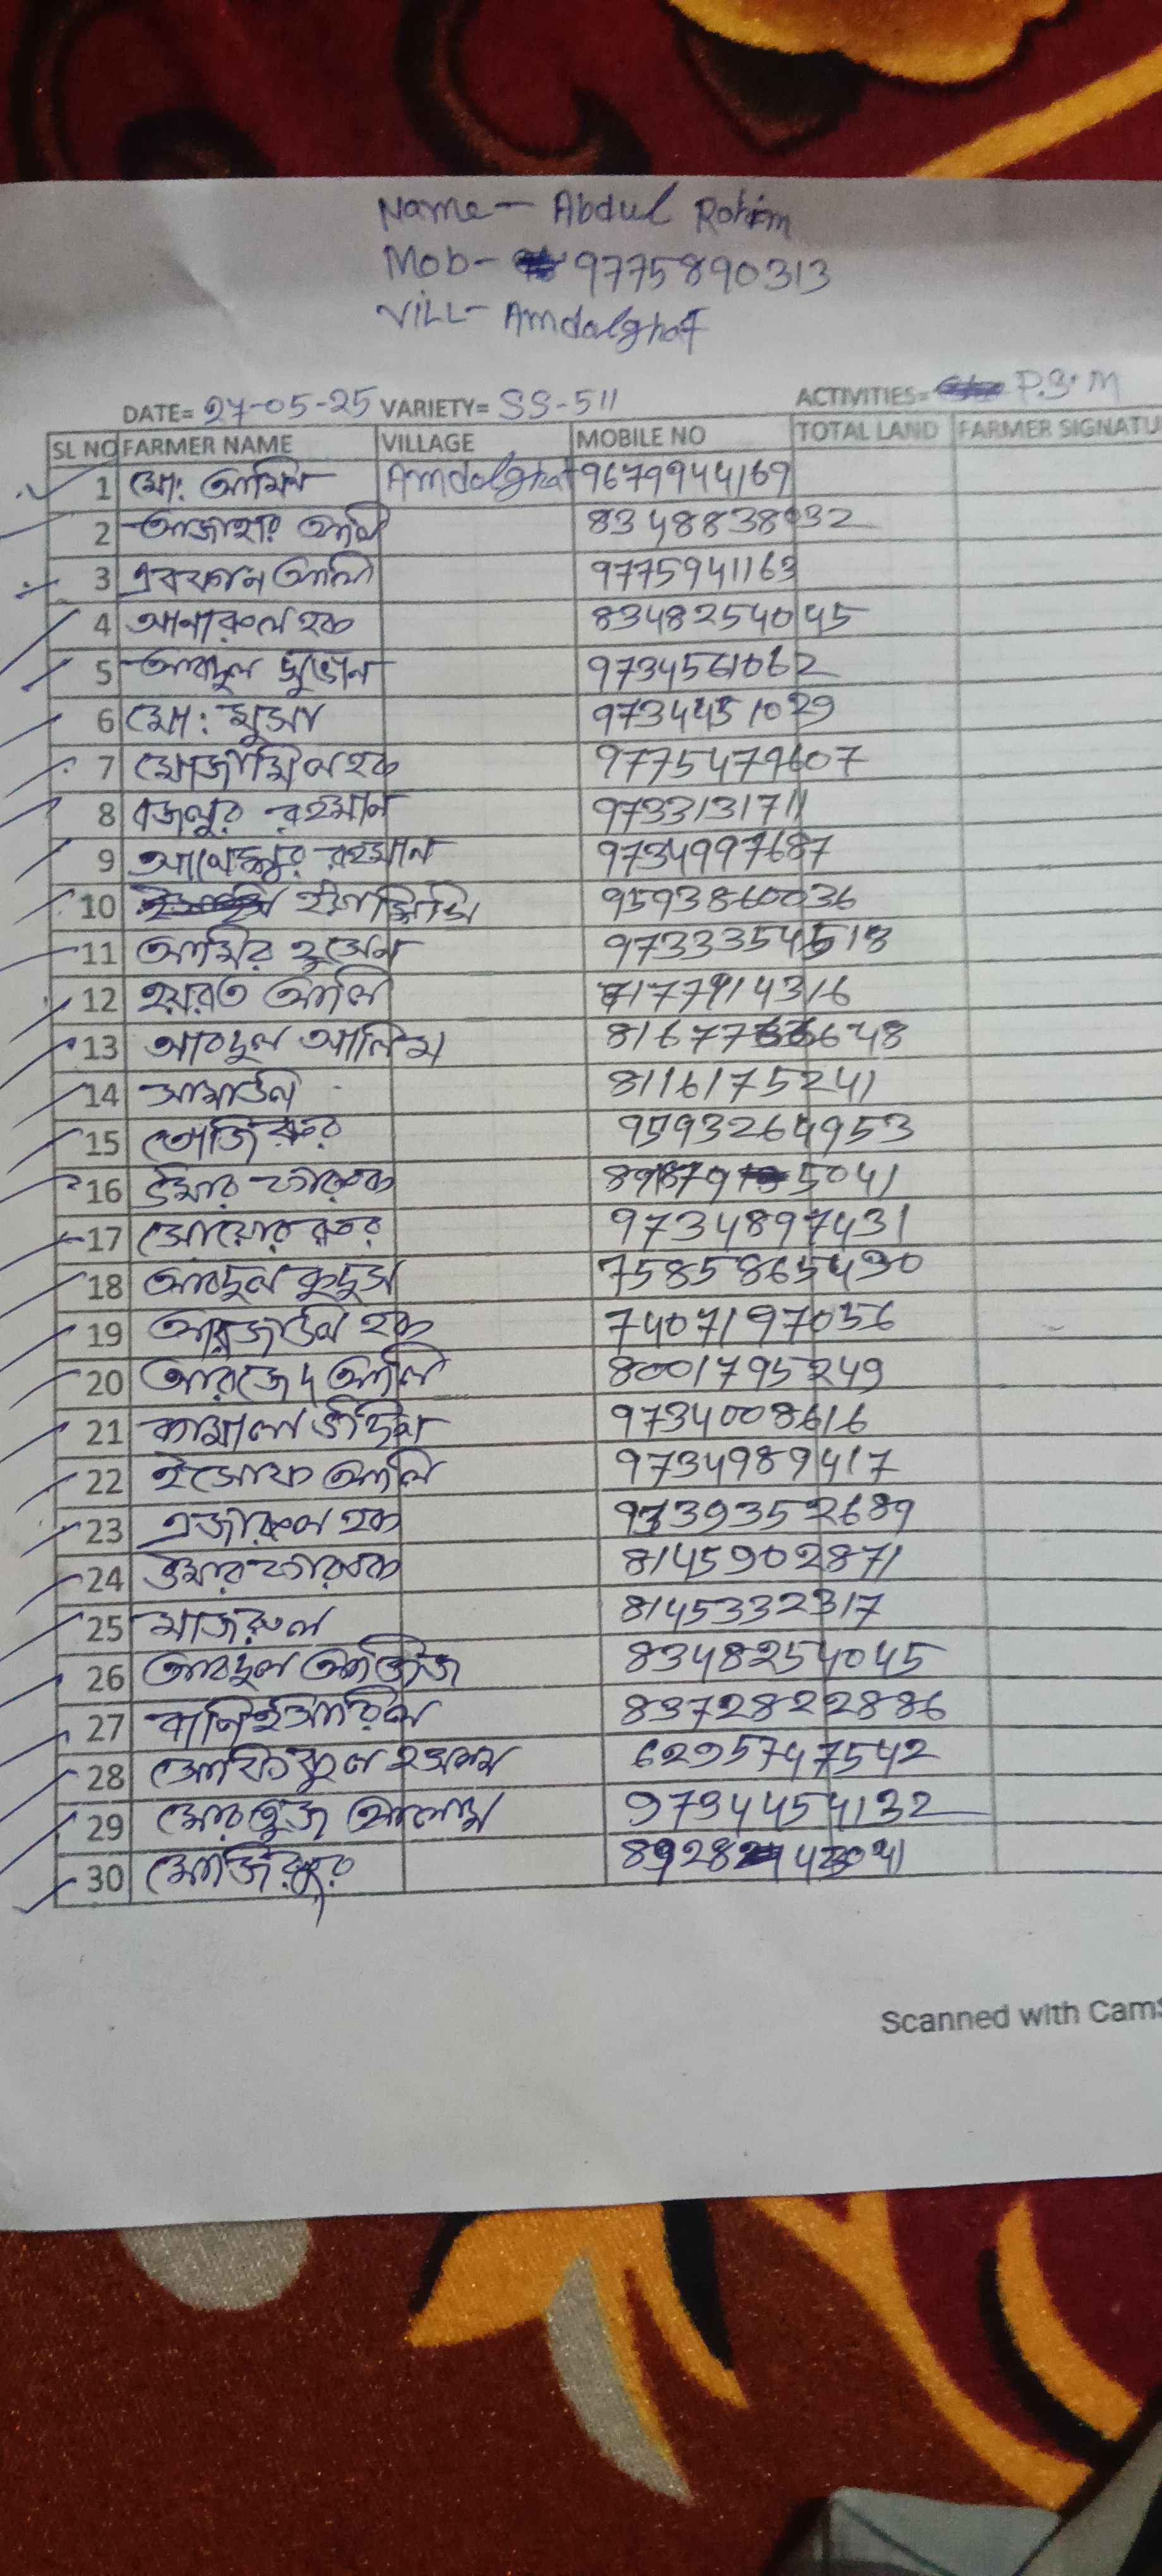 Name- Abdul Rohim
Mob- 9775890313
Vill- Amdalghat
DATE= 27-05-25 VARIETY= SS-511 ACTIVITIES= P.S.M
SL NO FARMER NAME VILLAGE MOBILE NO TOTAL LAND FARMER SIGNATU
1 মো: আমিন Amdalghat 9679944169
2 আজাহার আলি 8348838932
3 এরফান আলি 9775941163
4 আনারুল হক 8348254045
5 আবদুল সুভান 9734561062
6 মো: মুসা 9734451029
7 মোজাম্মিল হক 9775479607
8 বজলুর রহমান 9733131711
9 রহমান 9734997687
10 9593860036
11 আমির হুসেন 9733354518
12 হযরত আলি 7177914316
13 আবদুল আলিম
14 সামাউল 8116175241
15 9593264953
16 উমার ফারুক
17 9734897431
18 আবদুল কুদ্দুস 7585865490
19 আরজাউল হক 7407197056
20 আরজেদ আলি 8001795249
21 কামাল উদ্দিন 9734008616
22 ইসোফ আলি 9734989417
23 এজারুল হক
24 উমার ফারুক 8145902871
25 মাজরুল 8145332317
26 আবদুল আজিজ 8348254045
27 8372822886
28 6295747542
29 আলাম 9734454132
30
Scanned with Cam